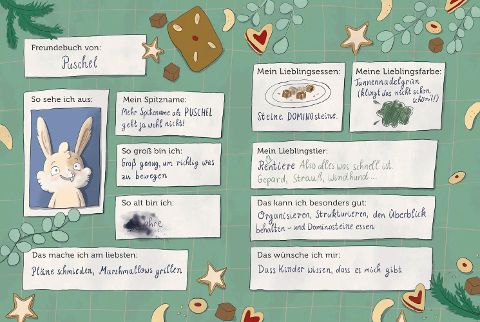 Freundebuch von:
Puschel
So sehe ich aus:
Mein Spitzname:
Mehr Spitzname als PUSCHEL
geht ja wohl nicht!
So groß bin ich:
Groß genug, um richtig was
zu bewegen
So alt bin ich:
Jahre
Das mache ich am liebsten:
Pläne schmieden, Marshmallows grillen
Mein Lieblingsessen:
Steine. DOMINOsteine.
Meine Lieblingsfarbe:
Tannennadelgrün
(klingt das nicht schon
schön?!)
Mein Lieblingstier:
Rentiere Also alles was schnell ist.
Gepard, Strauß, Windhund...
Das kann ich besonders gut:
Organisieren, Strukturieren, den Überblick
behalten – und Dominosteine essen
Das wünsche ich mir:
Dass Kinder wissen, dass es mich gibt